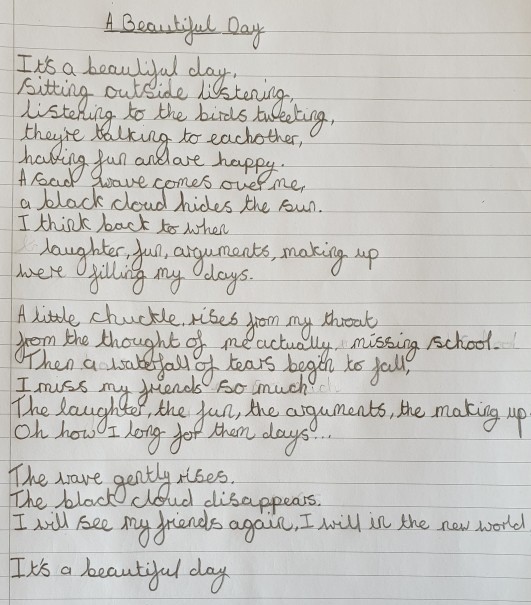 A Beautiful Day
It's a beautiful day,
Sitting outside listening,
listening to the birds tweeting,
they're talking to eachother,
having fun and are happy.
A sad wave comes over me,
a black cloud hides the sun.
I think back to when
laughter, fun, arguments, making up
were filling my days.
A little chuckle, rises from my throat
from the thought of me actually missing school.
Then a waterfall of tears begin to fall,
I miss my friends so much.
The laughter, the fun, the arguments, the making up
Oh how I long for them days...
The wave gently rises.
The black cloud disappears.
I will see my friends again, I will in the new world
It's a beautiful day